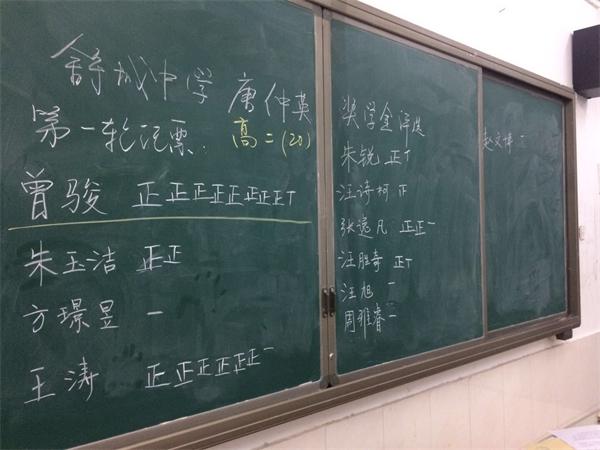 舒城中学 唐仲英 奖学金评选
第一轮记票: 高二(20)
曾骏 正正正正正正正正T
朱玉洁 正正
方璟昱 一
王涛 正正正正正正一
朱锐 正T
汪诗柯 正
张逸凡 正正一
汪胜奇 正T
汪旭 一
周雅睿 一
赵文博 一